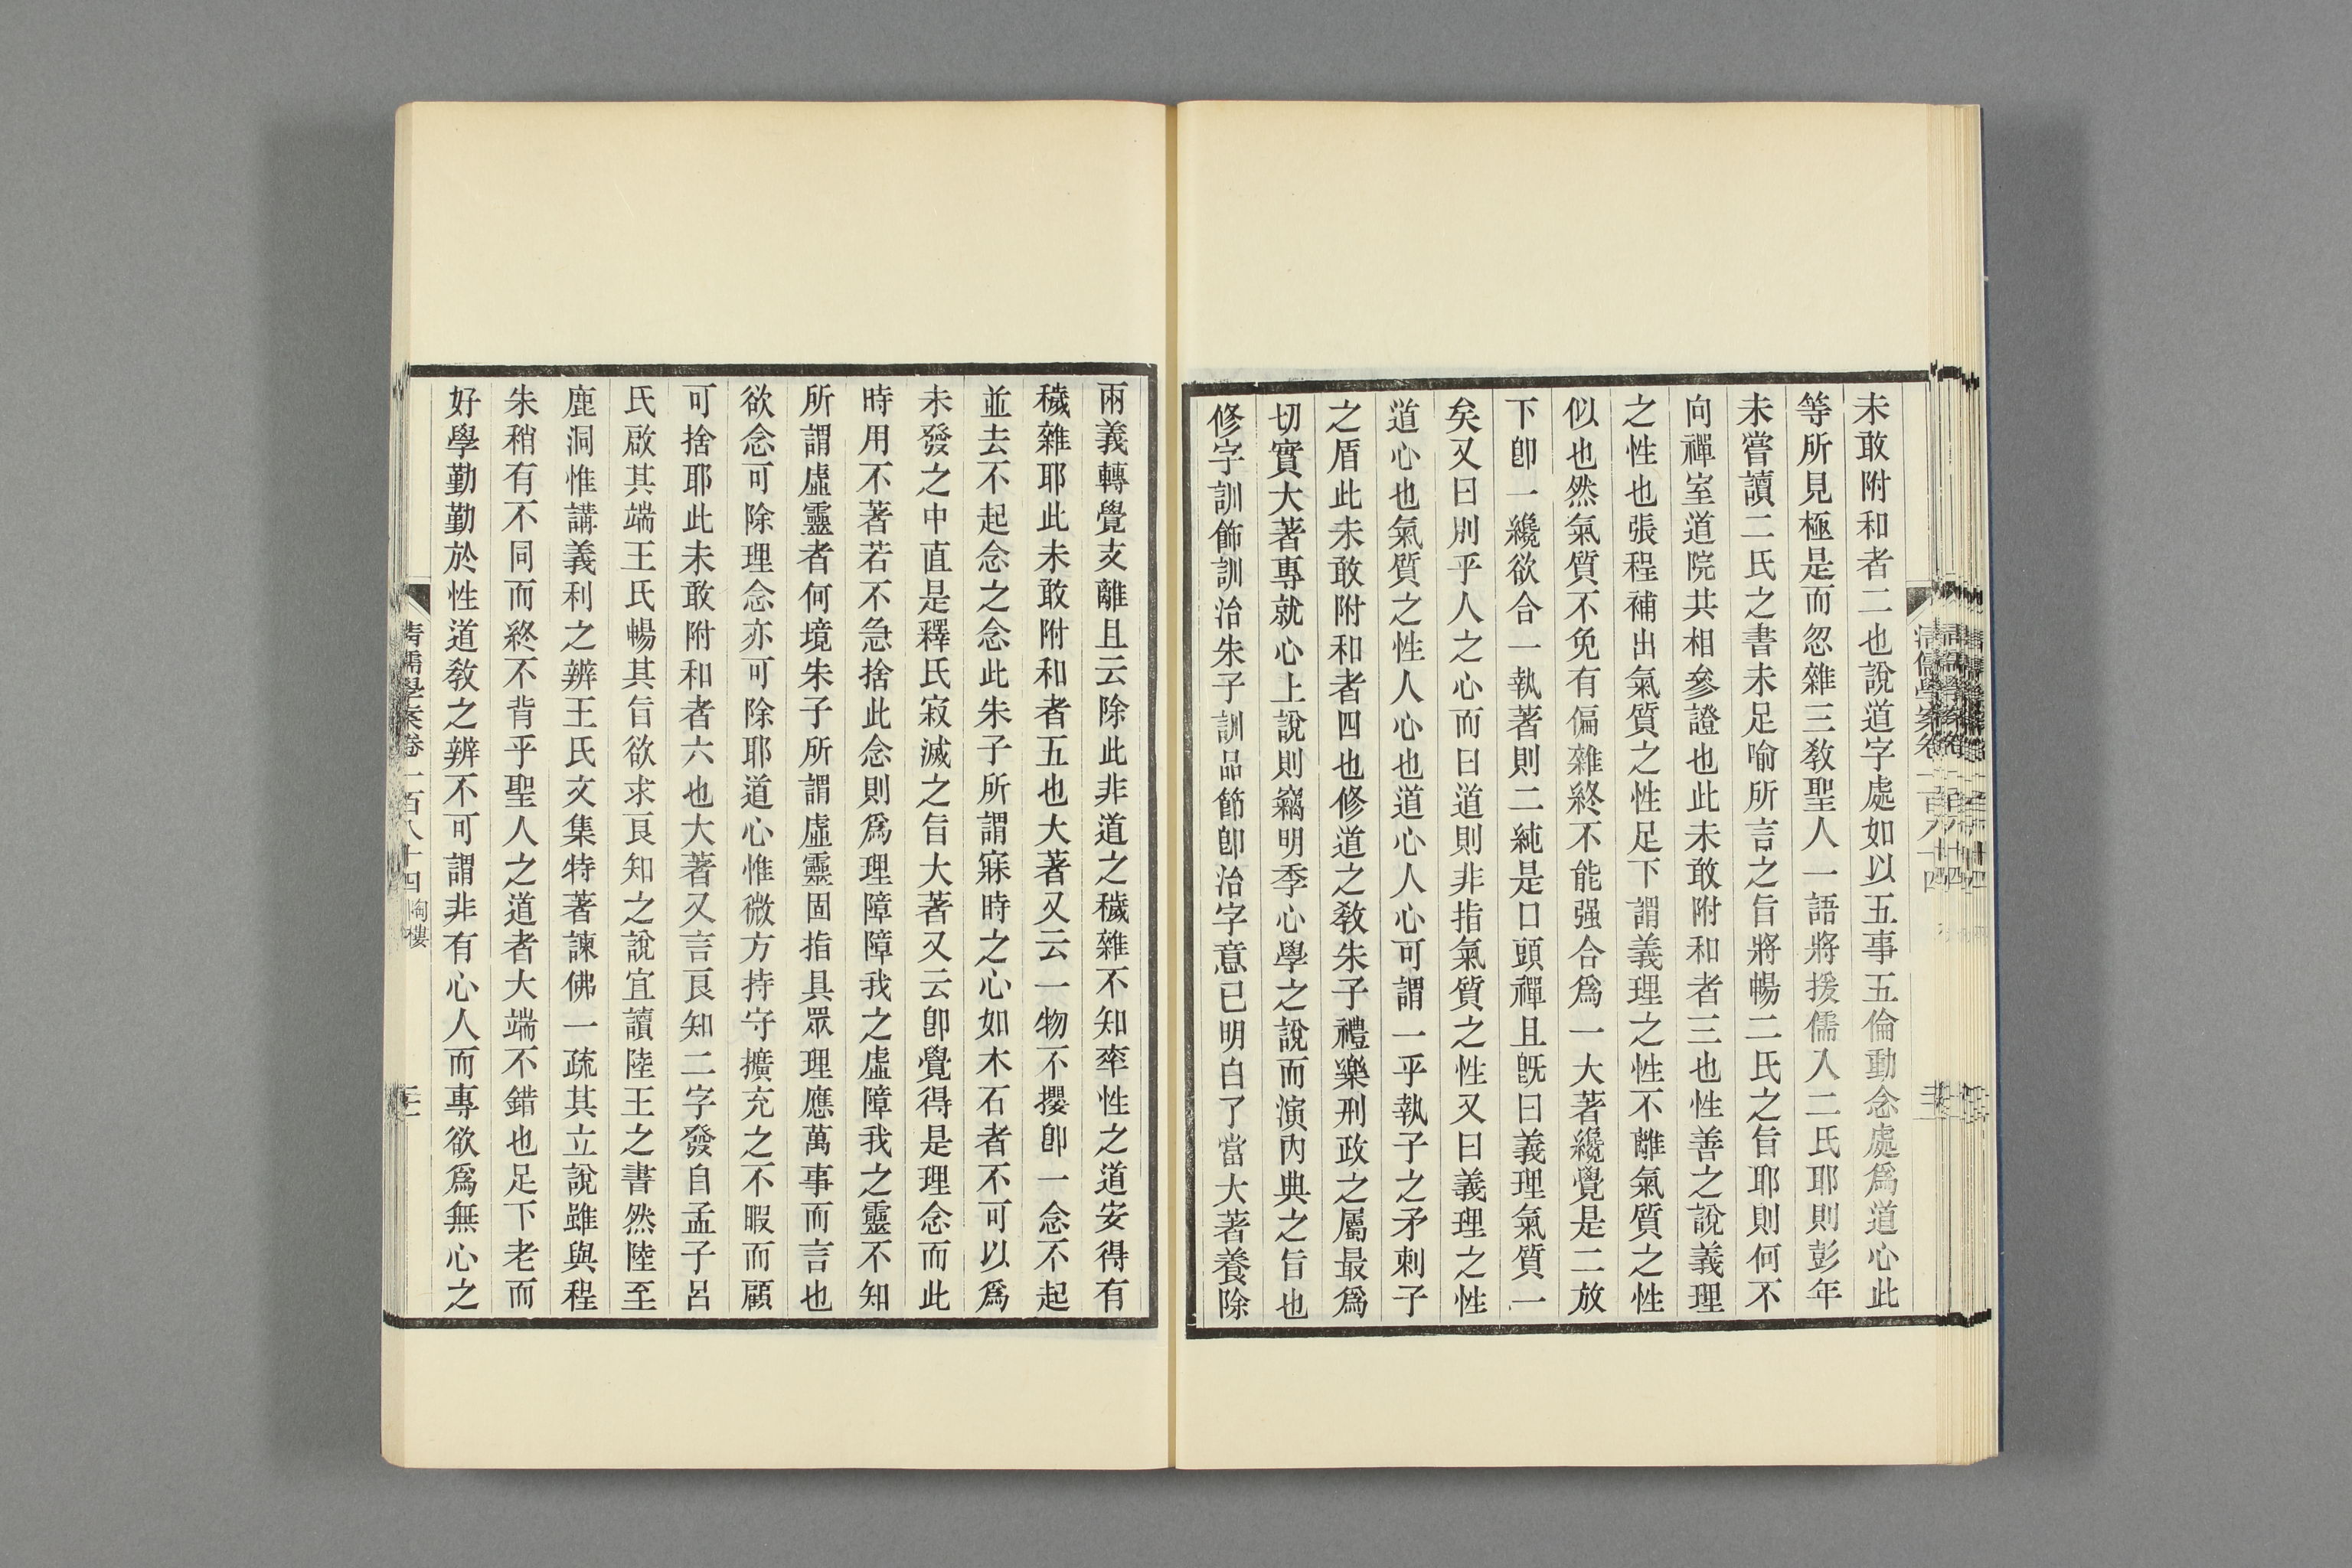 未敢附和者二也說道字處如以五事五倫動念處爲道心此
等所見極是而忽雜三敎聖人一語將援儒入二氏耶則彭年
未嘗讀二氏之書未足喻所言之旨將暢二氏之旨耶則何不
向禪室道院共相參證也此未敢附和者三也性善之說義理
之性也張程補出氣質之性足下謂義理之性不離氣質之性
似也然氣質不免有偏雜終不能强合爲一大著纔覺是二放
下卽一纔欲合一執著則二純是口頭禪且旣曰義理氣質一
矣又曰別乎人之心而曰道則非指氣質之性又曰義理之性
道心也氣質之性人心也道心人心可謂一乎執子之矛刺子
之盾此未敢附和者四也修道之敎朱子禮樂刑政之屬最爲
切實大著專就心上說則竊明季心學之說而演內典之旨也
修字訓飾訓治朱子訓品節卽治字意已明白了當大著養除
兩義轉覺支離且云除此非道之穢雜不知率性之道安得有
穢雜耶此未敢附和者五也大著又云一物不攖卽一念不起
並去不起念之念此朱子所謂寐時之心如木石者不可以爲
未發之中直是釋氏寂滅之旨大著又云卽覺得是理念而此
時用不著若不急捨此念則爲理障障我之虛障我之靈不知
所謂虛靈者何境朱子所謂虛靈固指具眾理應萬事而言也
欲念可除理念亦可除耶道心惟微方持守擴充之不暇而顧
可捨耶此未敢附和者六也大著又言良知二字發自孟子呂
氏啟其端王氏暢其旨欲求良知之說宜讀陸王之書然陸至
鹿洞惟講義利之辨王氏文集特著諫佛一疏其立說雖與程
朱稍有不同而終不背乎聖人之道者大端不錯也足下老而
好學勤勤於性道敎之辨不可謂非有心人而專欲爲無心之
清儒學案卷一百八十四